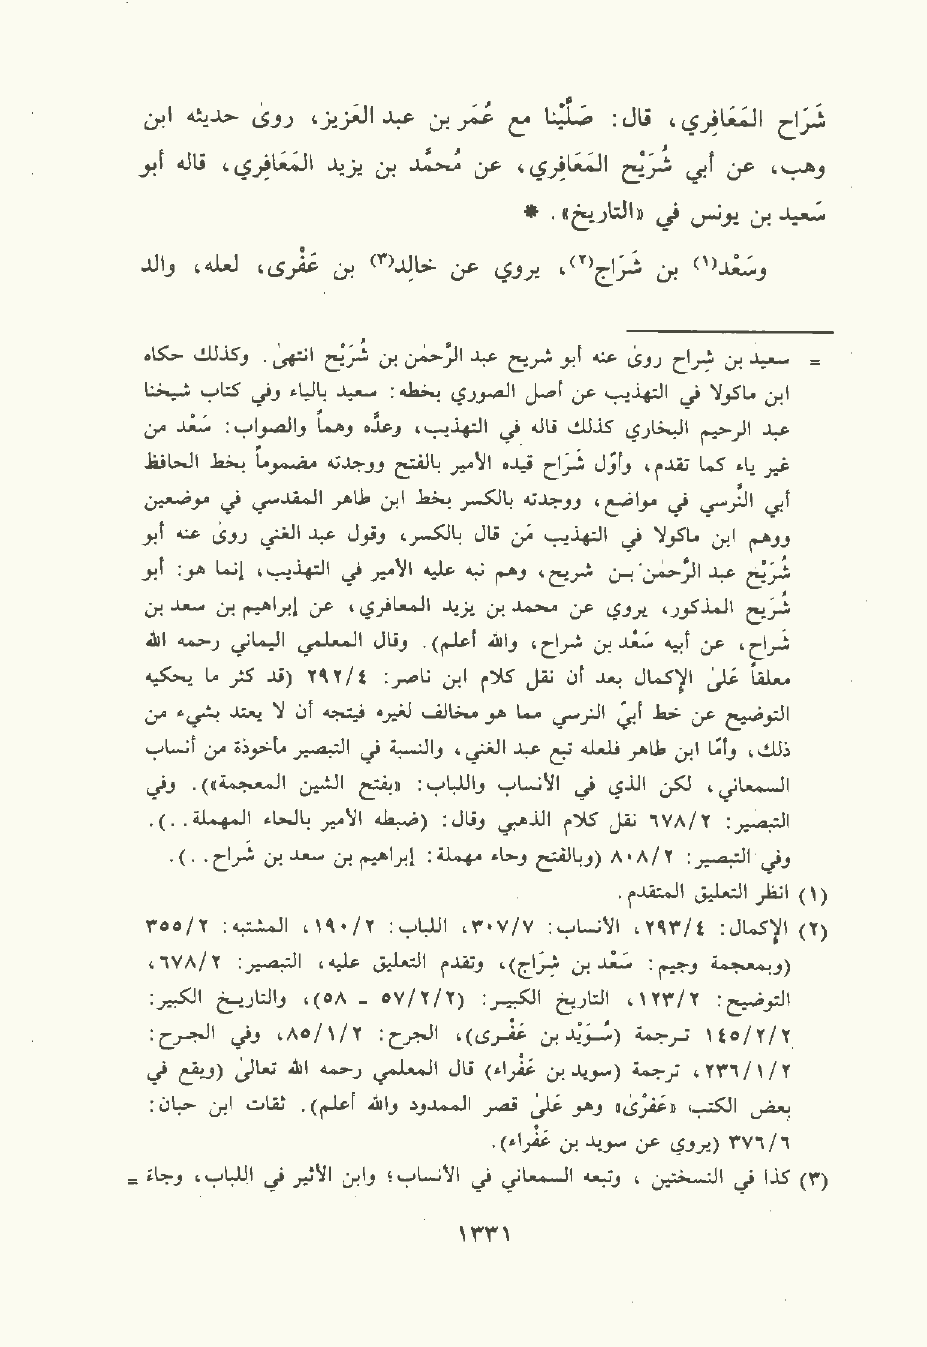 شَرَاح المَعَافِري، قال: صَلَّيْنا مع عُمَر بن عبد العَزيز، روىٰ حديثه ابن
وهب، عن أبي شُرَيْح المَعَافِري، عن مُحمَّد بن يزيد المَعَافِري، قاله أبو
سَعيد بن يونس في «التاريخ». *
وسَعْد(١) بن شَرَاج(٢)، يروي عن خالِد(٣) بن عَفْرى، لعله، والد
= سعيد بن شراح روىٰ عنه أبو شريح عبد الرَّحمٰن بن شُرَيْح انتهىٰ. وكذلك حكاه
ابن ماكولا في التهذيب عن أصل الصوري بخطه: سعيد بالياء وفي كتاب شيخنا
عبد الرحيم البخاري كذلك قاله في التهذيب، وعدَّه وهماً والصواب: سَعْد من
غير ياء كما تقدم، وأوّل شَرَاح قيده الأمير بالفتح ووجدته مضموماً بخط الحافظ
أبي النَّرسي في مواضع، ووجدته بالكسر بخط ابن طاهر المقدسي في موضعين
ووهم ابن ماكولا في التهذيب مَن قال بالكسر، وقول عبد الغني روىٰ عنه أبو
شُرَيْح عبد الرَّحمٰن بن شريح، وهم نبه عليه الأمير في التهذيب، إنما هو: أبو
شُرَيح المذكور، يروي عن محمد بن يزيد المعافري، عن إبراهيم بن سعد بن
شَراح، عن أبيه سَعْد بن شراح، والله أعلم). وقال المعلمي اليماني رحمه الله
معلقاً علىٰ الإكمال بعد أن نقل كلام ابن ناصر: ٢٩٢/٤ (قد كثر ما يحكيه
التوضيح عن خط أُبي النرسي مما هو مخالف لغيره فيتجه أن لا يعتد بشيء من
ذلك، وأمّا ابن طاهر فلعله تبع عبد الغني، والنسبة في التبصير مأخوذة من أنساب
السمعاني، لكن الذي في الأنساب واللباب: «بفتح الشين المعجمة»). وفي
التبصير: ٦٧٨/٢ نقل كلام الذهبي وقال: (ضبطه الأمير بالحاء المهملة. .).
وفي التبصير: ٨٠٨/٢ (وبالفتح وحاء مهملة: إبراهيم بن سعد بن شَراح. .).
(١) انظر التعليق المتقدم.
(٢) الإكمال: ٢٩٣/٤، الأنساب: ٣٠٧/٧، اللباب: ١٩٠/٢، المشتبه: ٣٥٥/٢
(وبمعجمة وجيم: سَعْد بن شَرَاج)، وتقدم التعليق عليه، التبصير: ٦٧٨/٢،
التوضيح: ١٢٣/٢، التاريخ الكبير: (٥٧/٢/٢ - ٥٨)، والتاريخ الكبير:
١٤٥/٢/٢ ترجمة (سُوَيْد بن عَفْرى)، الجرح: ٨٥/١/٢، وفي الجرح:
٢٣٦/١/٢، ترجمة (سويد بن عَفْراء) قال المعلمي رحمه الله تعالىٰ (ويقع في
بعض الكتب «عَفْرىٰ» وهو علىٰ قصر الممدود والله أعلم). ثقات ابن حبان:
٣٧٦/٦ (يروي عن سويد بن عَفْراء).
(٣) كذا في النسختين، وتبعه السمعاني في الأنساب؛ وابن الأثير في اللباب، وجاءَ =
١٣٣١